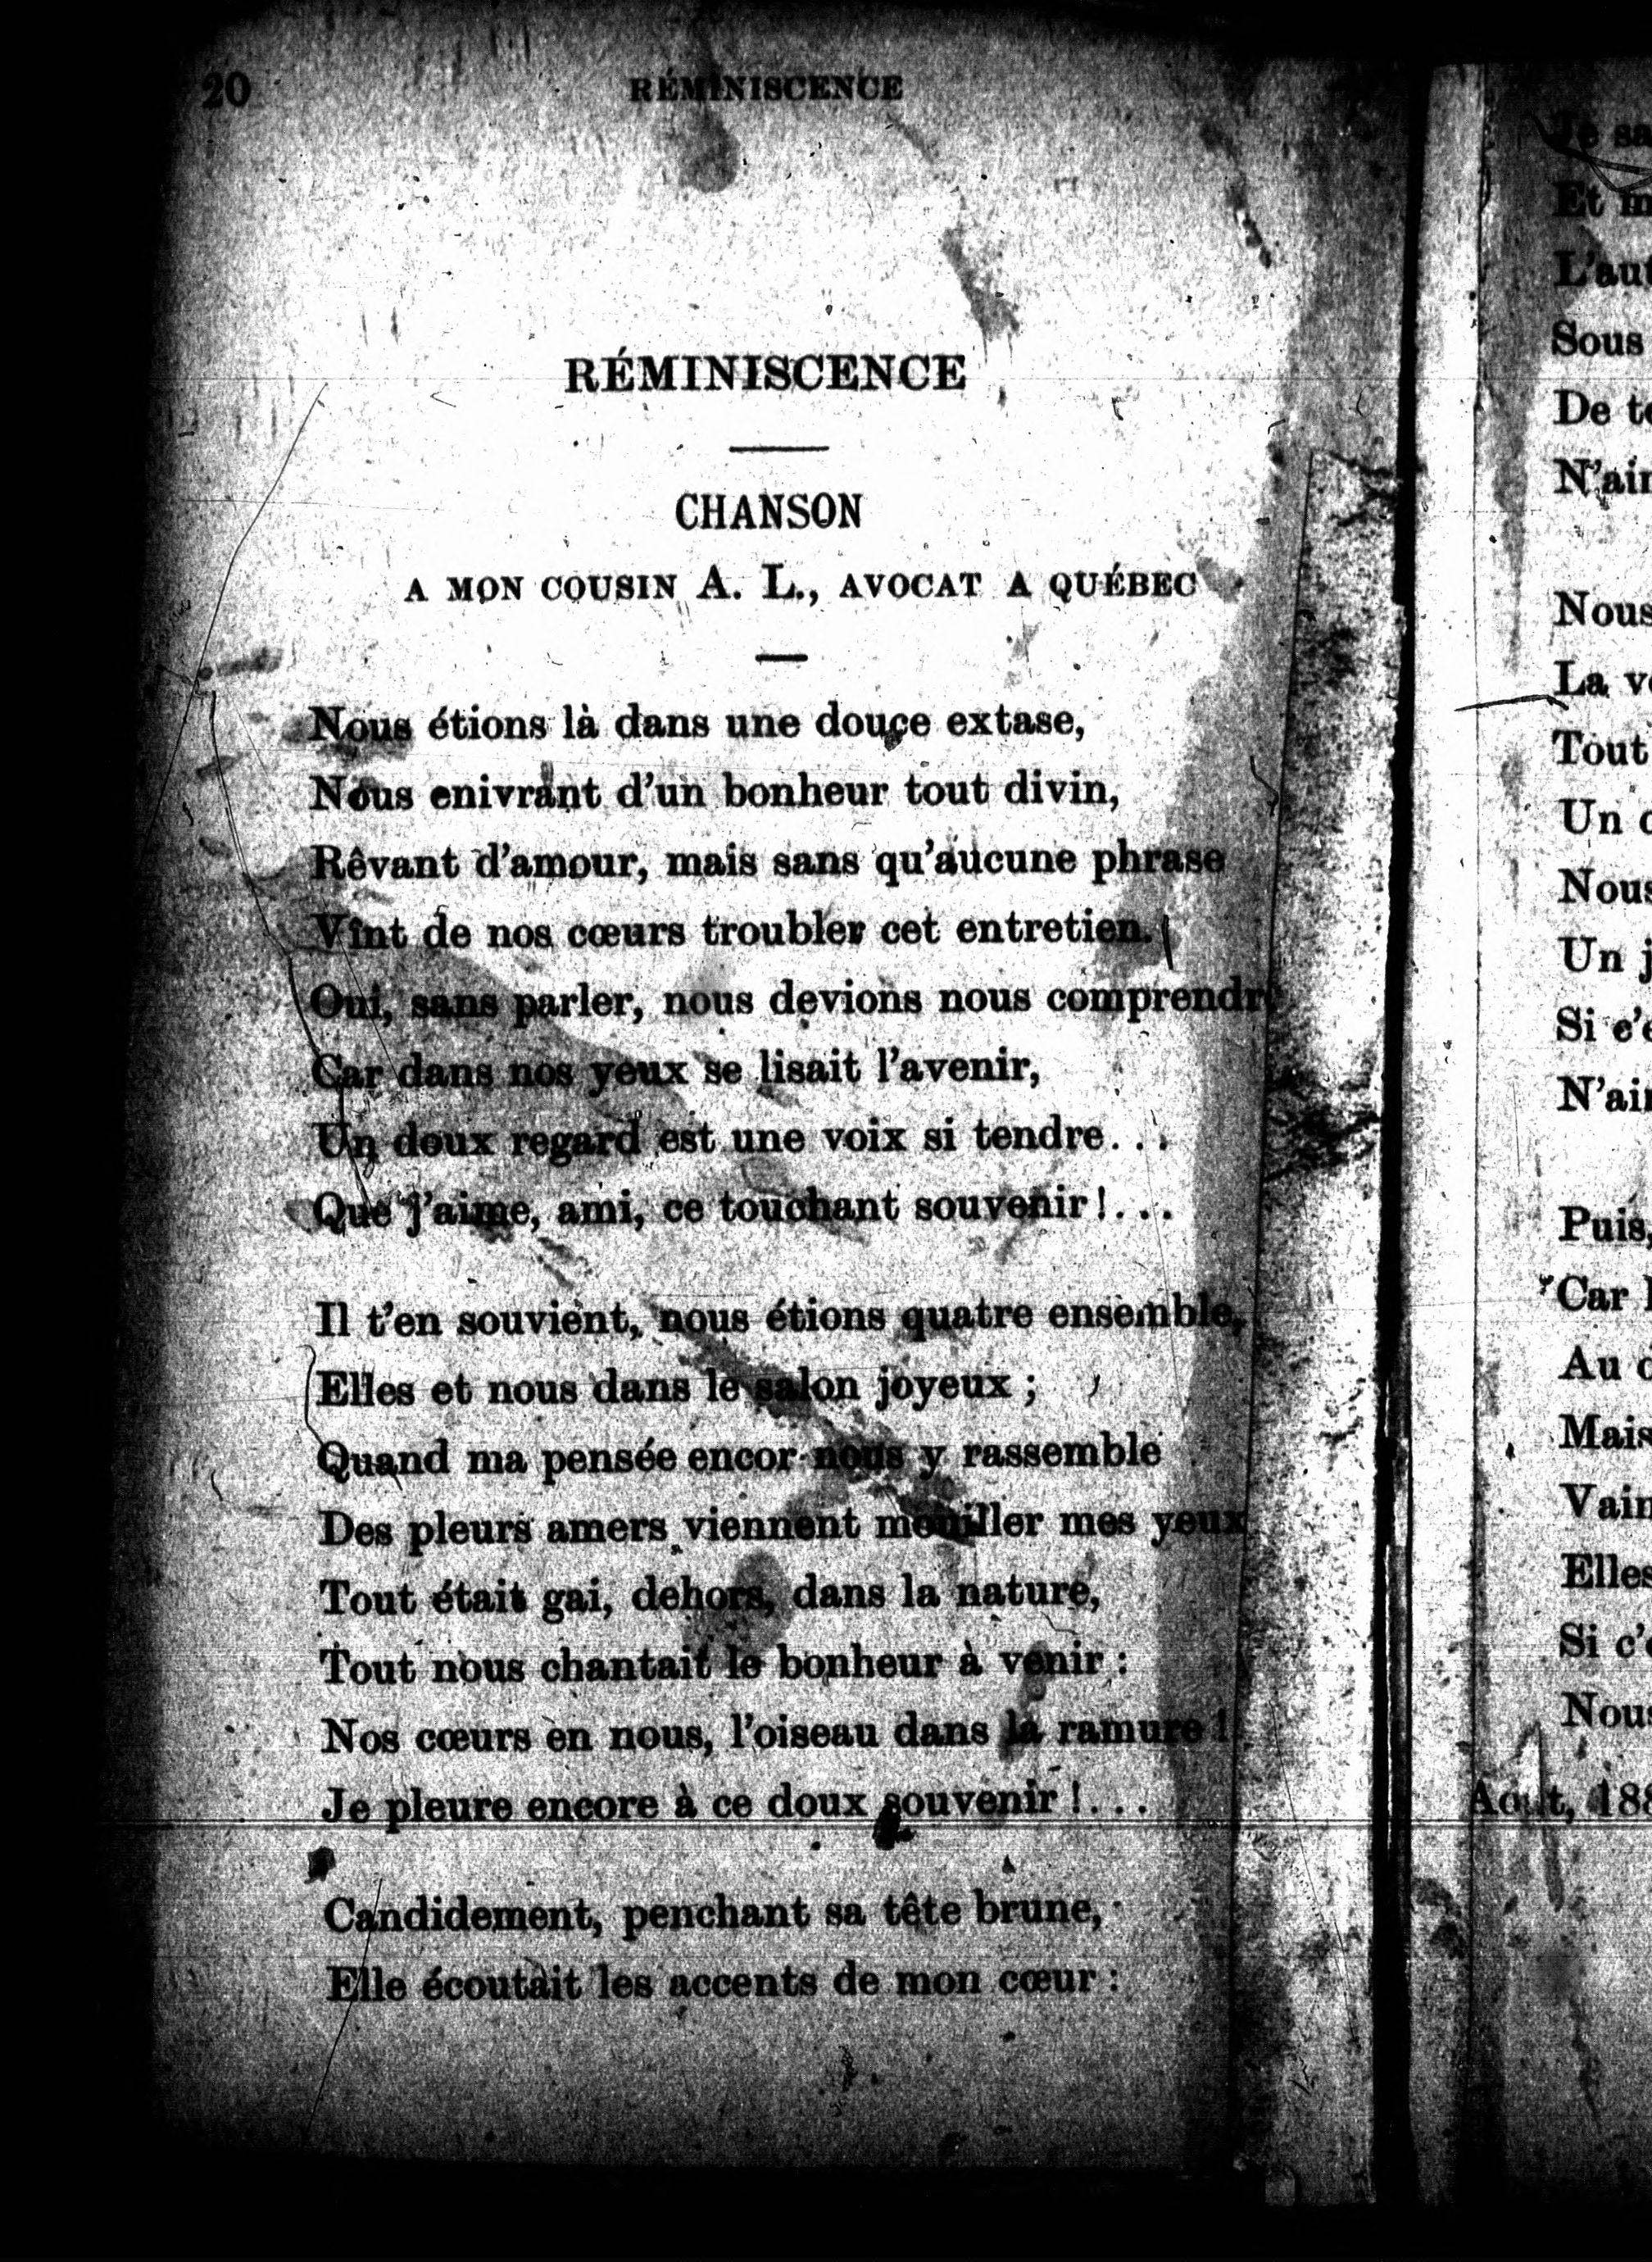 20 RÉMINISCENCE
RÉMINISCENCE
CHANSON
A MON COUSIN A. L., AVOCAT A QUÉBEC
Nous étions là dans une douce extase,
Nous enivrant d'un bonheur tout divin,
Rêvant d'amour, mais sans qu'aucune phrase
Vînt de nos cœurs troubler cet entretien.
Oui, sans parler, nous devions nous comprendre
Car dans nos yeux se lisait l'avenir,
Un doux regard est une voix si tendre...
Que j'aime, ami, ce touchant souvenir!...
Il t'en souvient, nous étions quatre ensemble,
Elles et nous dans le salon joyeux ;
Quand ma pensée encor nous y rassemble
Des pleurs amers viennent mouiller mes yeux
Tout était gai, dehors, dans la nature,
Tout nous chantait le bonheur à venir :
Nos cœurs en nous, l'oiseau dans la ramure !
Je pleure encore à ce doux souvenir !...
Candidement, penchant sa tête brune,
Elle écoutait les accents de mon cœur :
Je
Et
L'au
Sous
De
N'ai
Nous
La
Tout
Un
Nous
Un
Si c'
N'ai
Puis,
Car
Au
Mais
Vain
Elles
Si c'
Nous
Août, 188